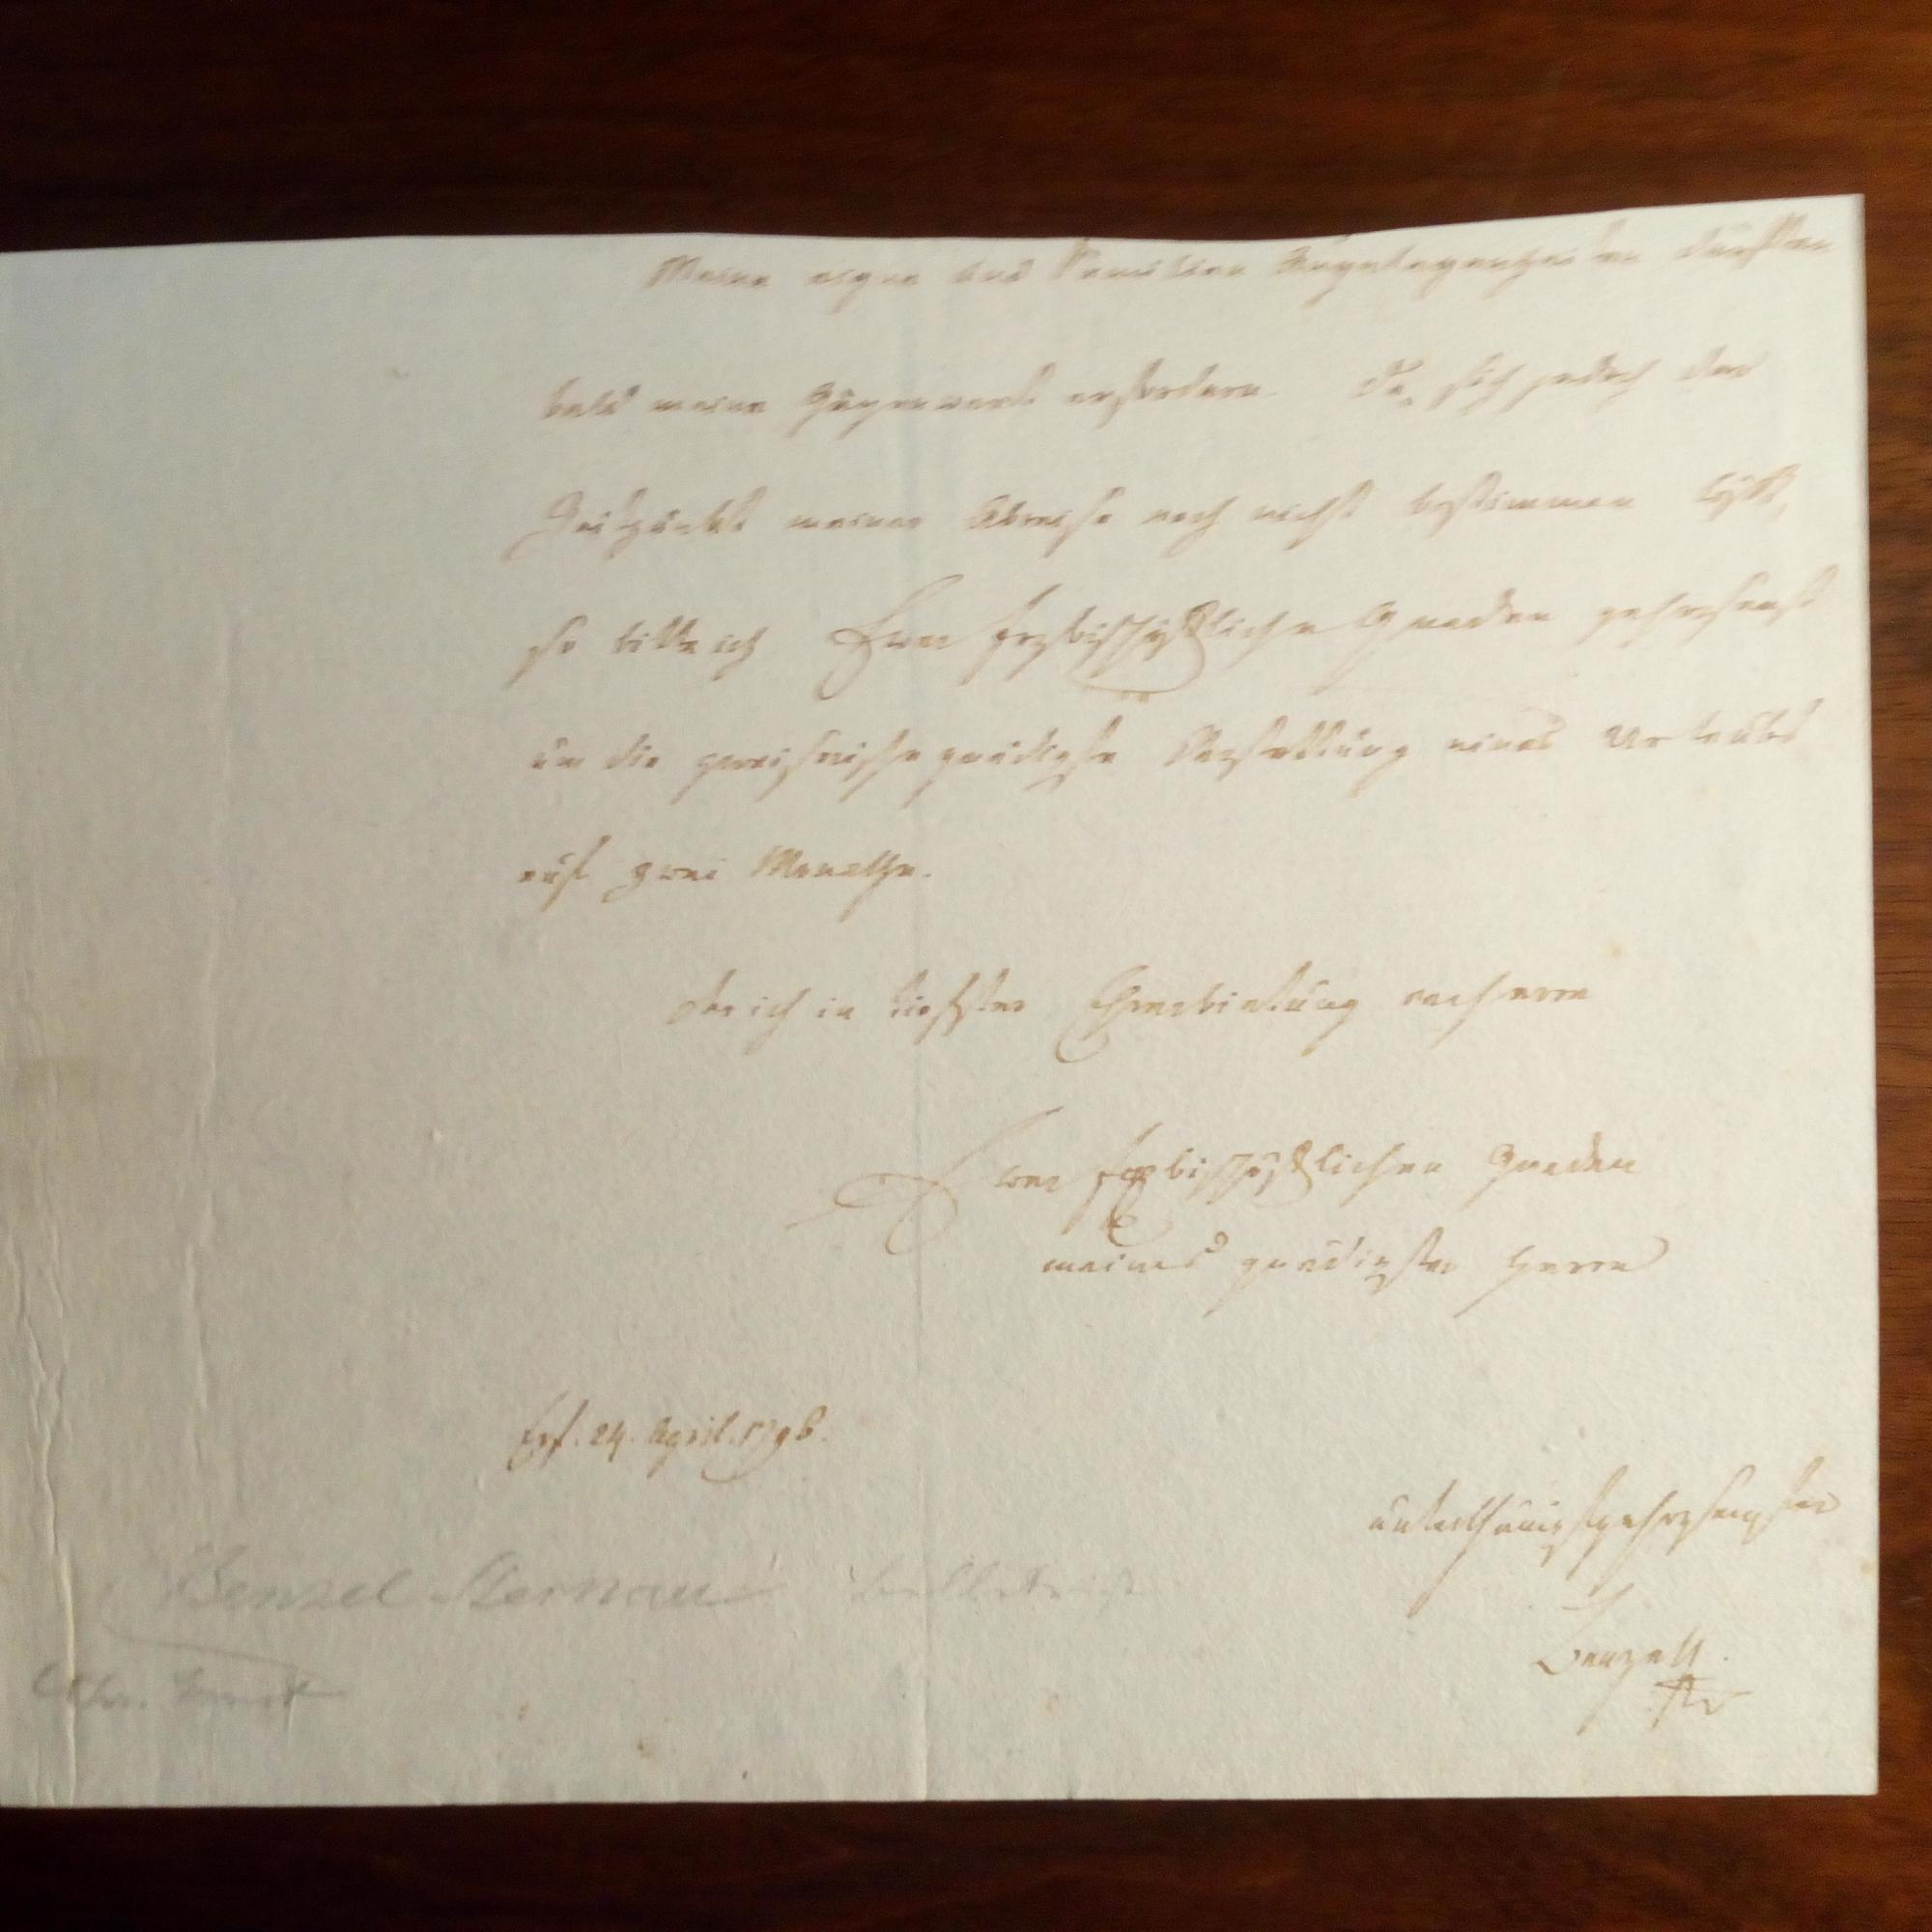 Meine eigne und Familien Angelegenheiten dürften
bald meine Gegenwart erfordern. Da sich jedoch der
Zeitpunkt meiner Abreise noch nicht bestimmen läßt,
so bitte ich Euer Erzbischöfliche Gnaden gehorsamst
um die gnädigste Verstattung eines Urlaubs
auf zwei Monathe.
der ich in tiefster Ehrerbietung verharre
Euer Erzbischöflichen Gnaden
meines gnädigsten Herrn
Erf. 24. April. 1796.
unterthänigstgehorsamster
Benzel
Benzel Sternau
Chr. Ernst